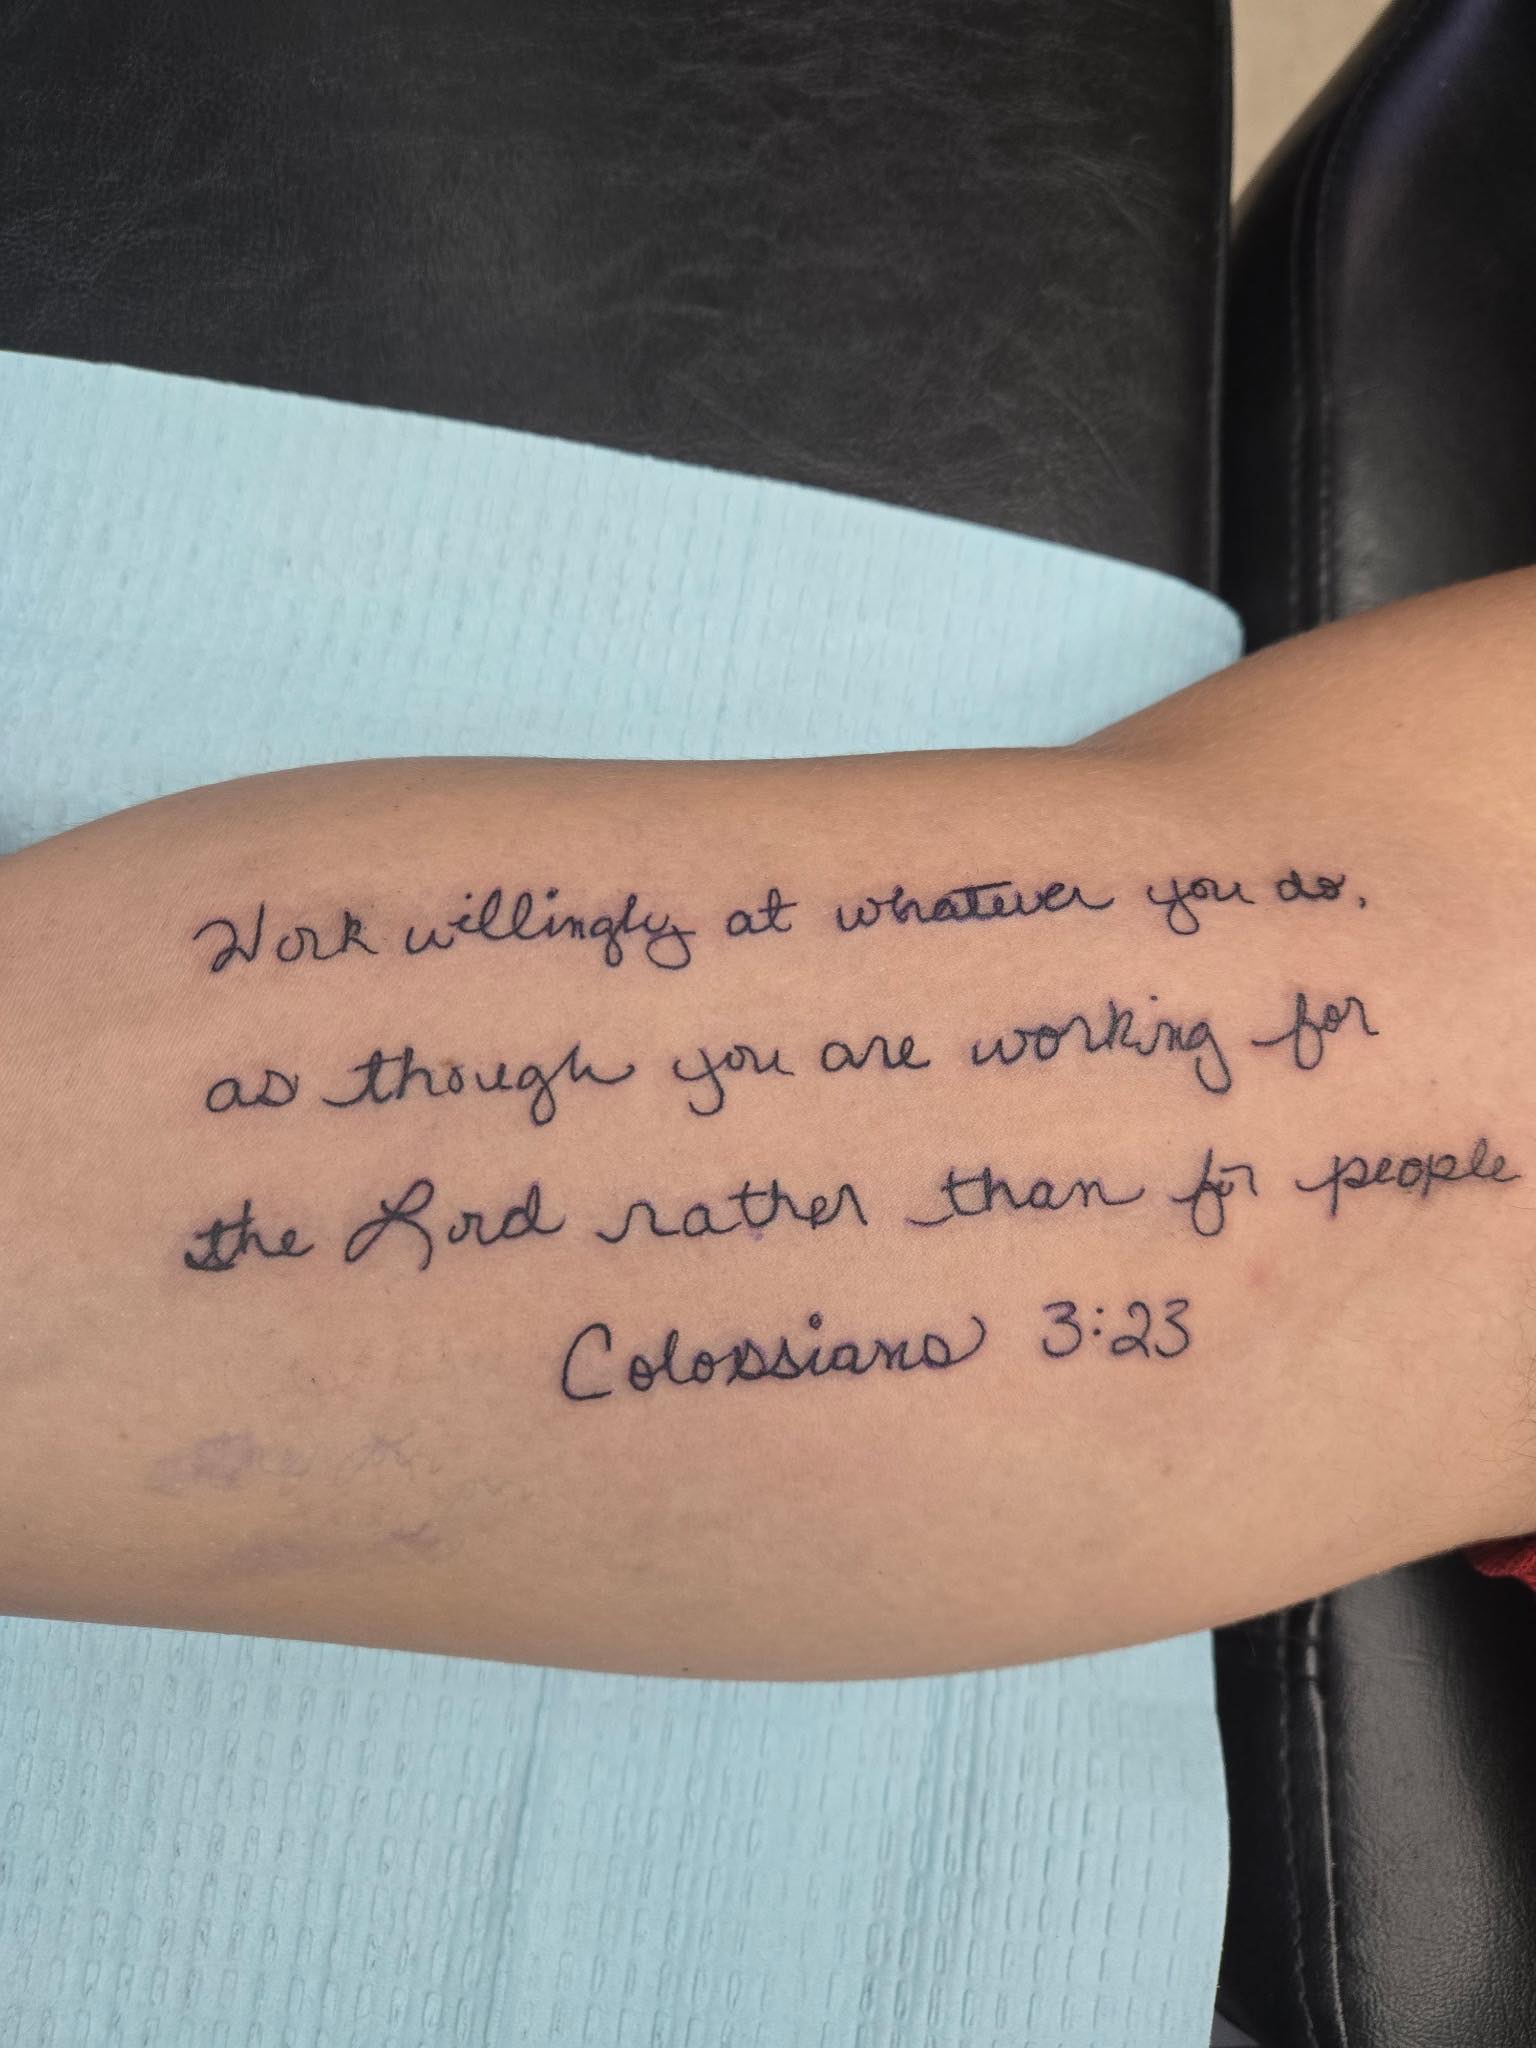 Work willingly at whatever you do,
as though you are working for
the Lord rather than for people
Colossians 3:23